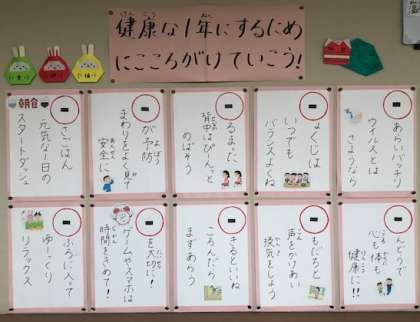 健康な1年にするために
けんこう
ねん
こころがけていこう!
あらいバッチリ
ウイルスとは
さようなら
ょくじは
いつでも
バランスよくね
るまった
背中はぴんっと
のばそう
が予防
よぼう
まわりをよく見て
安全に
あんぜん
朝食
さごはん
元気な1日の
スタートダッシュ
んどうで
心も体も
健康に!!
もだちと
声をかけあい
換気をしよう
ころんだら
まずあらう
を大切に!
ゲームやスマホは
時間をきめて!
ふろに入って
ゆーっくり
リラックス